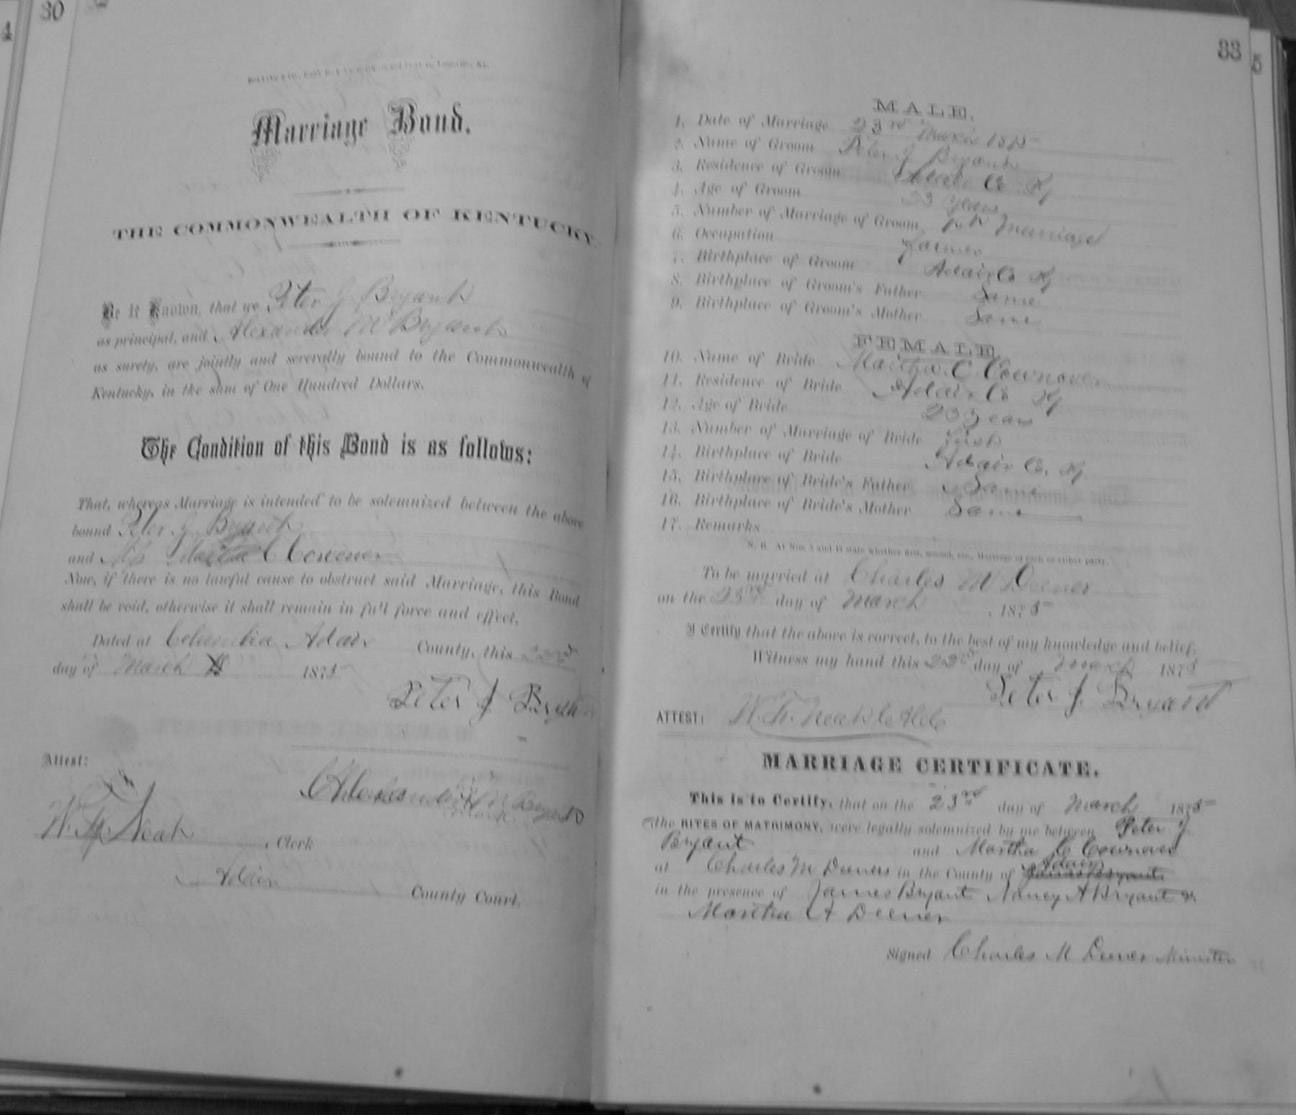 30
Marriage Bond.
THE COMMONWEALTH OF KENTUCKY.
Be it Known, that we Peter J Bryant
as principal, and Alexander M Bryant
as surety, are jointly and severally bound to the Commonwealth of
Kentucky, in the sum of One Hundred Dollars.
The Condition of this Bond is as follows:
That, whereas Marriage is intended to be solemnized between the above
bound Peter J. Bryant
and Mrs Martha C Conover
Now, if there is no lawful cause to obstruct said Marriage, this Bond
shall be void, otherwise it shall remain in full force and effect.
Dated at Columbia Adair County, this 23rd
day of March 1875
Peter J Bryant
Attest:
Alexander M Bryant
W. F. Neat, Clerk
Adair County Court.
33
MALE.
1. Date of Marriage 23rd March 1875
2. Name of Groom Peter J Bryant
3. Residence of Groom Adair Co Ky
4. Age of Groom 23 years
5. Number of Marriage of Groom 1st Marriage
6. Occupation farmer
7. Birthplace of Groom Adair Co Ky
8. Birthplace of Groom's Father Same
9. Birthplace of Groom's Mother Same
FEMALE.
10. Name of Bride Martha C Cownover
11. Residence of Bride Adair Co Ky
12. Age of Bride 23 years
13. Number of Marriage of Bride first
14. Birthplace of Bride Adair Co. Ky
15. Birthplace of Bride's Father Same
16. Birthplace of Bride's Mother Same
17. Remarks
To be married at Charles M Deener
on the 23rd day of March, 1875
I Certify that the above is correct, to the best of my knowledge and belief.
Witness my hand this 23rd day of March 1875
Peter J. Bryant
ATTEST: W. F. Neat
MARRIAGE CERTIFICATE.
This is to Certify, that on the 23rd day of March 1875
the RITES OF MATRIMONY, were legally solemnized by me between Peter J
Bryant and Martha C Cownover
at Charles M Deeners in the County of Adair
in the presence of James Bryant Nancy A Bryant &
Martha A Deener
Signed Charles M Deener Minister